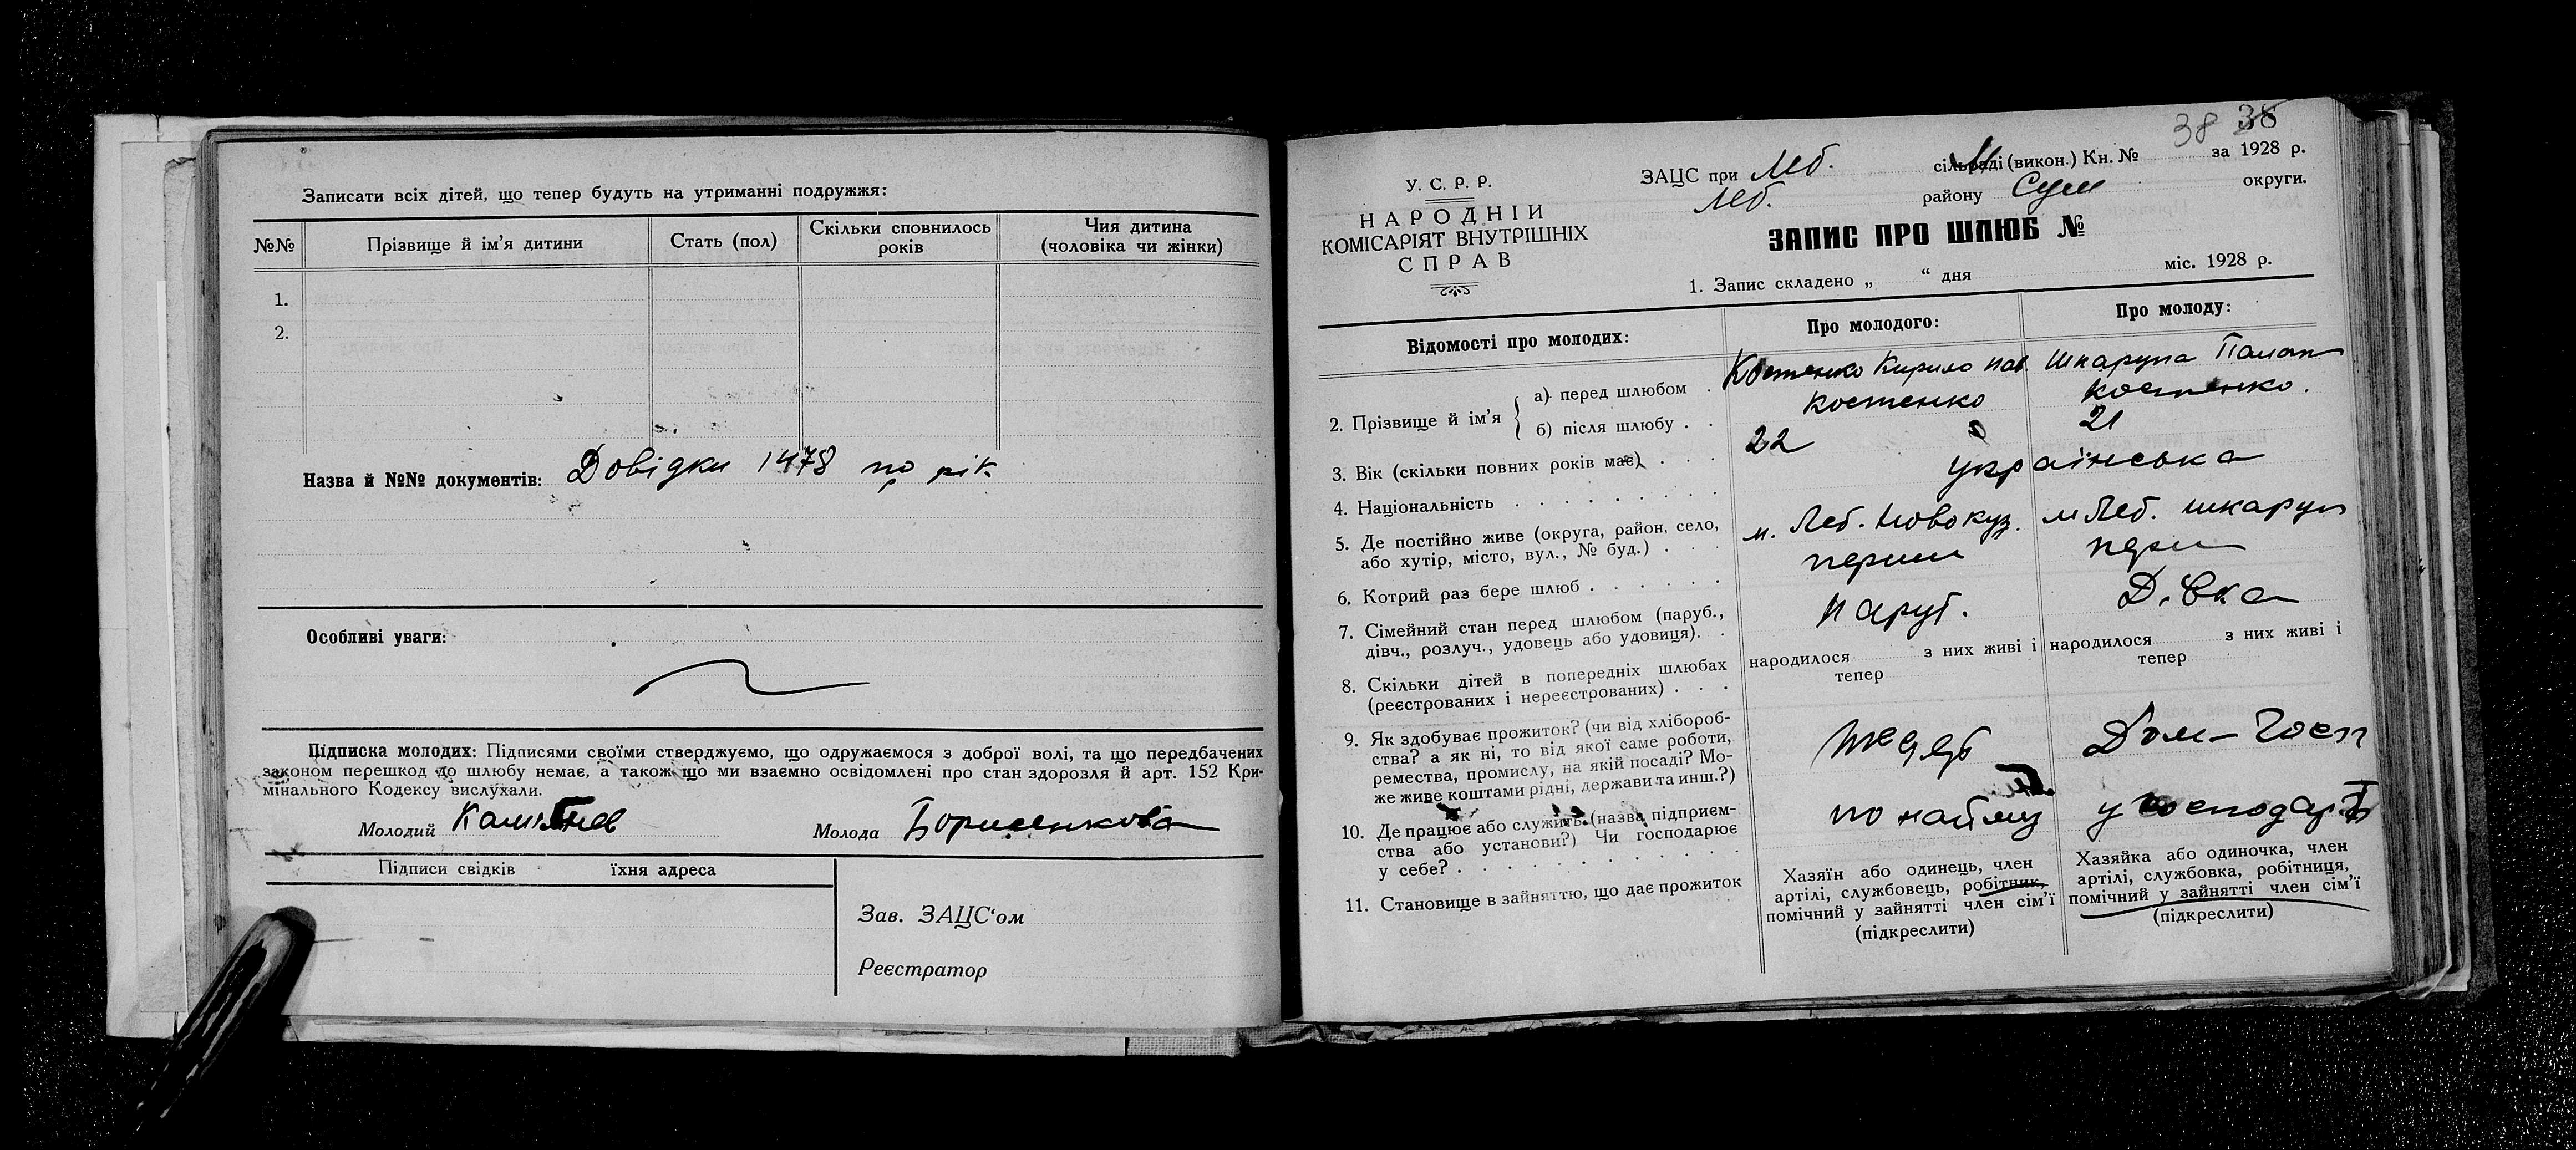 Записати всіх дітей, що тепер будуть на утриманні подружжя:
№№ Прізвище й ім'я дитини Стать (пол) Скільки сповнилось років Чия дитина (чоловіка чи жінки)
1.
2.
Назва й №№ документів: Довідки 1478 по рік
Особливі уваги:
Підписка молодих: Підписями своїми стверджуємо, що одружаємося з доброї волі, та що передбачених
законом перешкод до шлюбу немає, а також що ми взаємно освідомлені про стан здорозля й арт. 152 Кри-
мінального Кодексу вислухали.
Молодий Молода Борисенкова
Підписи свідків їхня адреса
Зав. ЗАЦС'ом
Реєстратор
38 38
У. С. Р. Р.
НАРОДНІЙ
КОМІСАРІЯТ ВНУТРІШНІХ
СПРАВ
ЗАЦС при Леб. сільраді (викон.) Кн. № за 1928 р.
Леб. району Сум округи.
ЗАПИС ПРО ШЛЮБ №
1. Запис складено „ “ дня міс. 1928 р.
Відомості про молодих: Про молодого: Про молоду:
2. Прізвище й ім'я
а) перед шлюбом . Костенко Кирило Пав. Шкарупа Палаж
б) після шлюбу . . Костенко Костенко.
3. Вік (скільки повних років має) . . . 22 21
4. Національність . . . . . . . . . українська
5. Де постійно живе (округа, район, село,
або хутір, місто, вул., № буд.) . . . м. Леб. Новокуз. м Леб. шкаруп
6. Котрий раз бере шлюб . . . . . . перши перш
7. Сімейний стан перед шлюбом (паруб.,
дівч., розлуч., удовець або удовиця). . паруб. Дівка
8. Скільки дітей в попередніх шлюбах
(реєстрованих і нереєстрованих) . . .
народилося з них живі і
тепер
народилося з них живі і
тепер
9. Як здобуває прожиток? (чи від хлібороб-
ства? а як ні, то від якої саме роботи,
ремества, промислу, на якій посаді? Мо-
же живе коштами рідні, держави та инш.?)
Дом-Госп
10. Де працює або служить (назва підприєм-
ства або установи?) Чи господарює
у себе? . . . . . . . . . .
по найму у господар
11. Становище в зайняттю, що дає прожиток
Хазяїн або одинець, член
артілі, службовець, робітник,
помічний у зайнятті член сім'ї
(підкреслити)
Хазяйка або одиночка, член
артілі, службовка, робітниця,
помічний у зайнятті член сім'ї
(підкреслити)